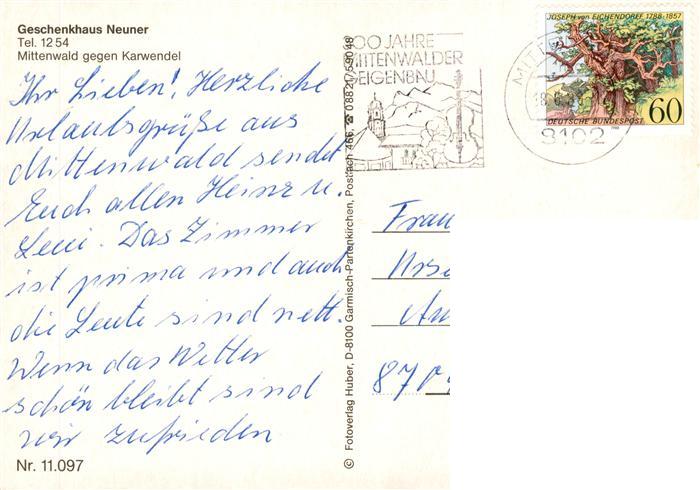 Geschenkhaus Neuner
Tel. 12 54
Mittenwald gegen Karwendel
Ihr Lieben! Herzliche
Urlaubsgrüße aus
Mittenwald sendet
Euch allen Heinz u.
Leni. Das Zimmer
ist prima und auch
die Leute sind nett.
Wenn das Wetter
schön bleibt sind
wir zufrieden
Nr. 11.097
© Fotoverlag Huber, D-8100 Garmisch-Partenkirchen, Postfach 466, ☎ 08821/59048
00 JAHRE
MITTENWALDER
GEIGENBAU
8102
JOSEPH von EICHENDORFF 1788-1857
DEUTSCHE BUNDESPOST
60
Frau
Urs
870